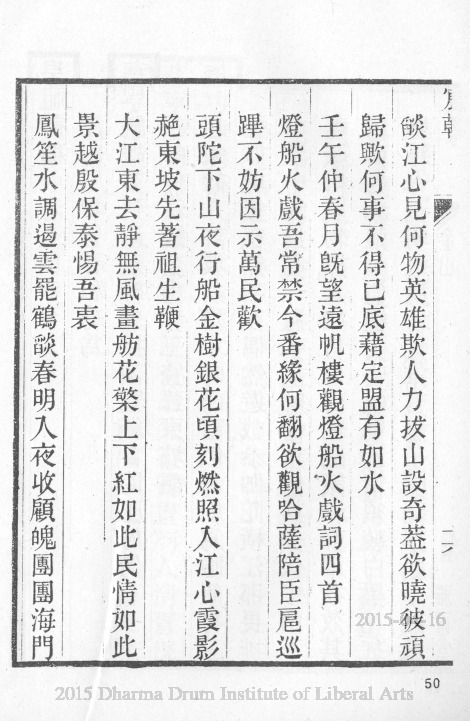 燄江心見何物英雄欺人力拔山設奇葢欲曉彼頑
歸歟何事不得已底藉定盟有如水
壬午仲春月旣望遠帆樓觀燈船火戲詞四首
燈船火戲吾常禁今番緣何翻欲觀哈薩陪臣扈巡
蹕不妨因示萬民歡
頭陀下山夜行船金樹銀花頃刻燃照入江心霞影
赩東坡先著祖生鞭
大江東去靜無風畫舫花藥上下紅如此民情如此
景越殷保泰惕吾衷
鳳笙水調遏雲罷鶴燄春明入夜收顧媿團團海門
50
2015 Dharma Drum Institute of Liberal Arts